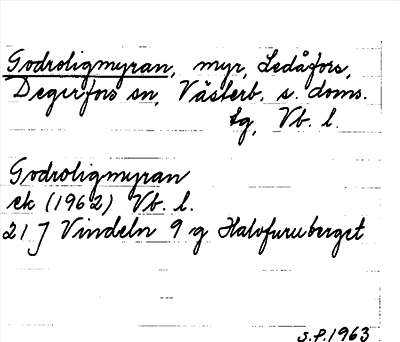 Godroligmyran, myr, Ledåfors,
Degerfors sn, Västerb. s. doms.
tg, Vb. l.
Godroligmyran
ek (1962) Vb. l.
21 J Vindeln 9 g Halvfuruberget
S.P. 1963